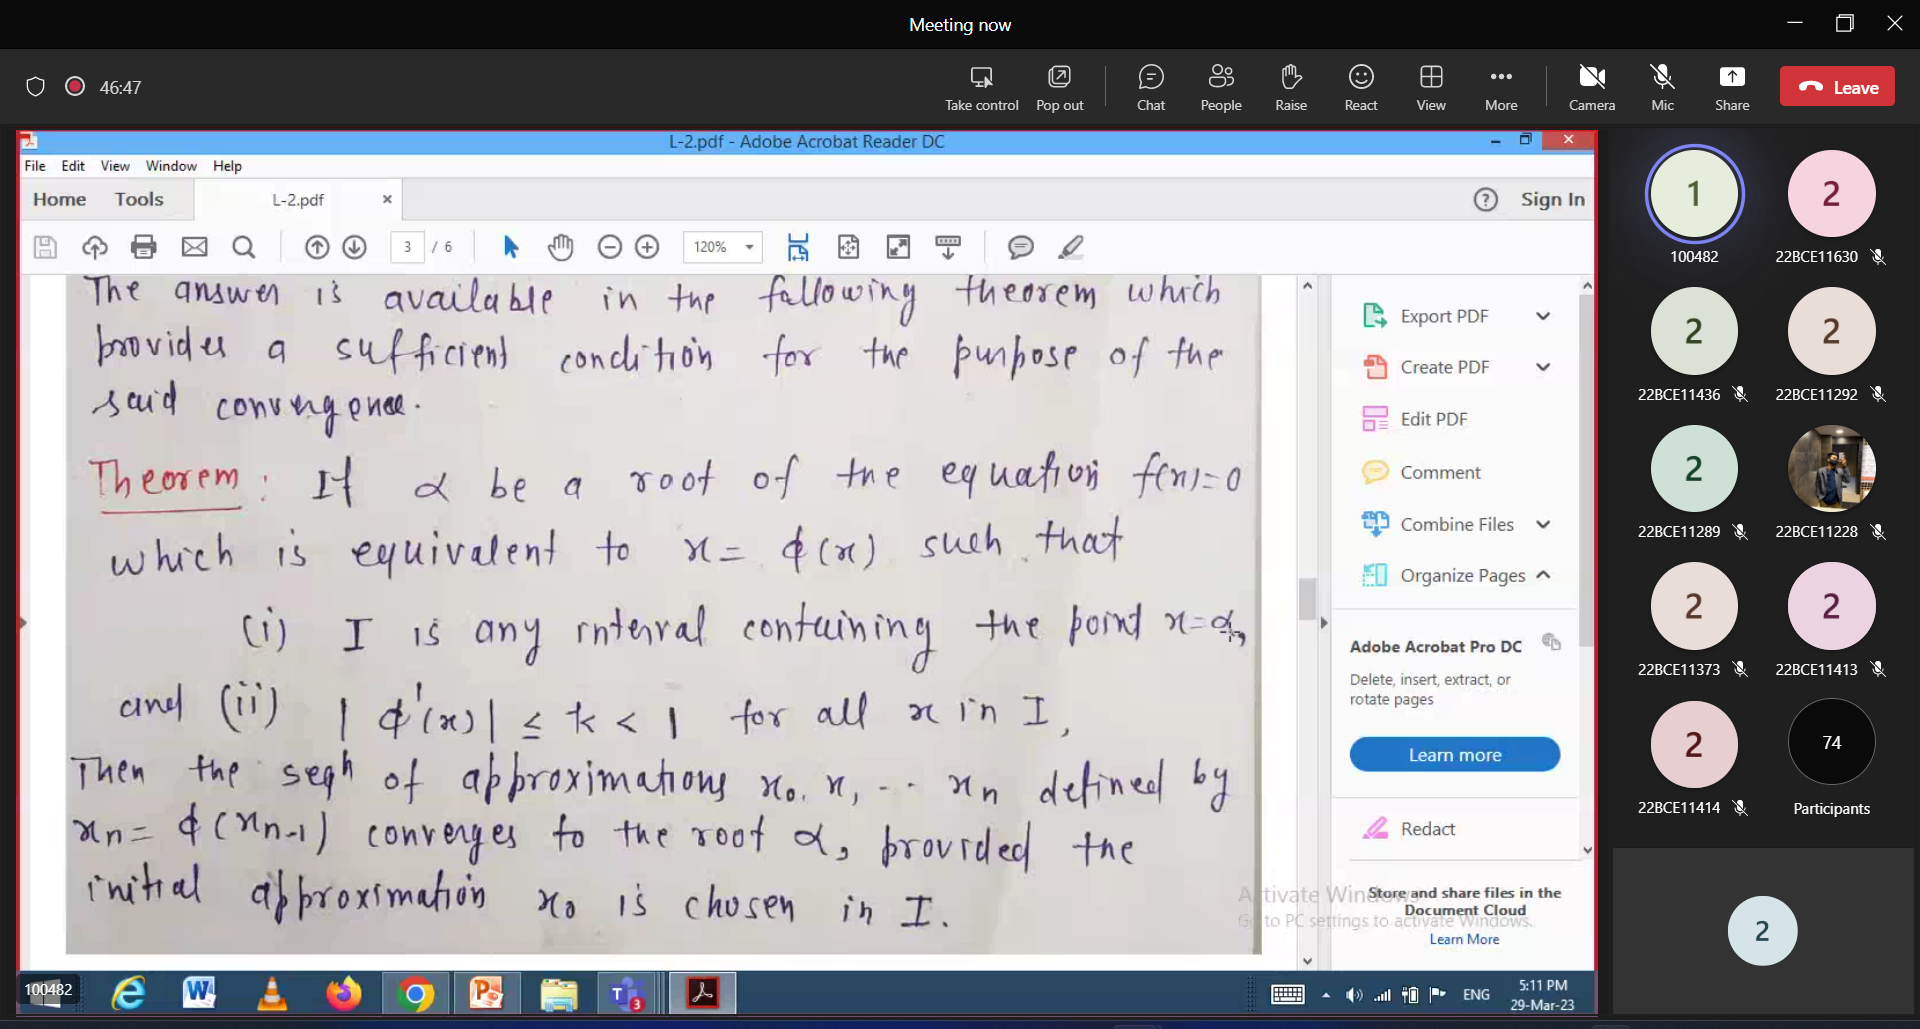 Meeting now
46:47
Take control
Pop out
Chat
People
Raise
React
View
More
Camera
Mic
Share
Leave
L-2.pdf - Adobe Acrobat Reader DC
File Edit View Window Help
Home Tools L-2.pdf × ? Sign In
3 / 6 120%
The answer is available in the following theorem which
provides a sufficient condition for the purpose of the
said convergence.
Theorem: If α be a root of the equation f(x)=0
which is equivalent to x = ϕ(x) such that
(i) I is any interval containing the point x=α,
and (ii) | ϕ'(x) | ≤ k < 1 for all x in I,
Then the seqn of approximations x0, x1 ... xn defined by
xn = ϕ(xn-1) converges to the root α, provided the
initial approximation x0 is chosen in I.
Export PDF
Create PDF
Edit PDF
Comment
Combine Files
Organize Pages
Adobe Acrobat Pro DC
Delete, insert, extract, or
rotate pages
Learn more
Redact
Activate Windows
Go to PC settings to activate Windows.
Store and share files in the
Document Cloud
Learn More
100482
3
ENG
5:11 PM
29-Mar-23
1 2
100482 22BCE11630
2 2
22BCE11436 22BCE11292
2
22BCE11289 22BCE11228
2 2
22BCE11373 22BCE11413
2 74
22BCE11414 Participants
2